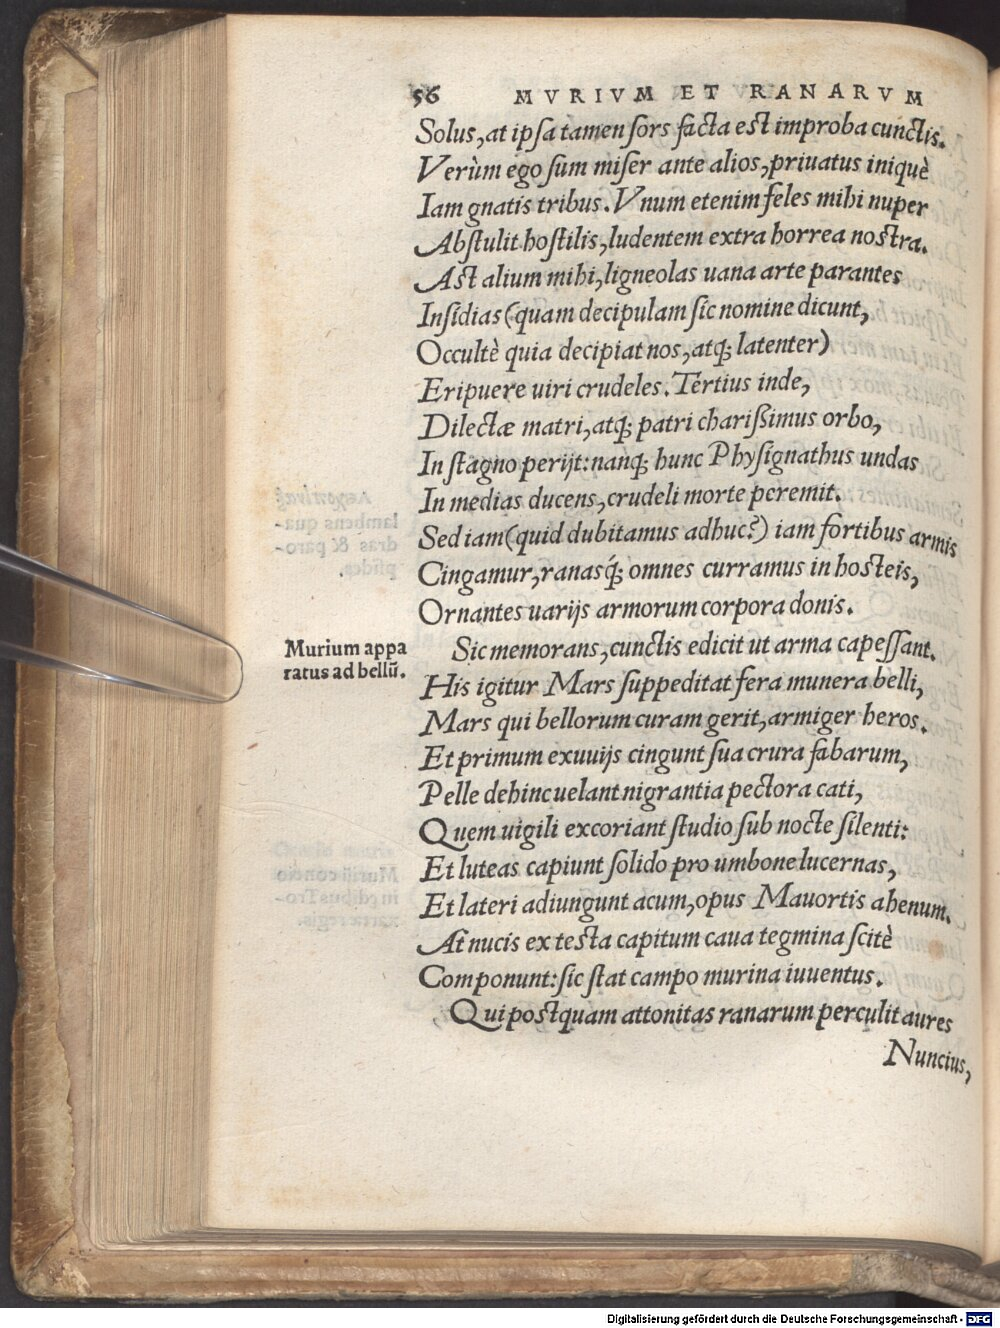 56 MVRIVM ET RANARVM
Solus, at ipſa tamen ſors facta eſt improba cunctis.
Verùm ego ſum miſer ante alios, priuatus iniquè
Iam gnatis tribus. Vnum etenim feles mihi nuper
Abſtulit hoſtilis, ludentem extra horrea noſtra.
Aſt alium mihi, ligneolas uana arte parantes
Inſidias (quam decipulam ſic nomine dicunt,
Occultè quia decipiat nos, atq; latenter)
Eripuere uiri crudeles. Tertius inde,
Dilectæ matri, atq; patri charißimus orbo,
In ſtagno perijt: nanq; hunc Phyſignathus undas
In medias ducens, crudeli morte peremit.
Sed iam (quid dubitamus adhuc?) iam fortibus armis
Cingamur, ranasq́; omnes curramus in hoſteis,
Ornantes uarijs armorum corpora donis.
Murium appa
ratus ad bellũ.
Sic memorans, cunctis edicit ut arma capeſſant.
His igitur Mars ſuppeditat fera munera belli,
Mars qui bellorum curam gerit, armiger heros.
Et primum exuuijs cingunt ſua crura fabarum,
Pelle dehinc uelant nigrantia pectora cati,
Quem uigili excoriant ſtudio ſub nocte ſilenti:
Et luteas capiunt ſolido pro umbone lucernas,
Et lateri adiungunt acum, opus Mauortis ahenum.
At nucis ex teſta capitum caua tegmina ſcitè
Componunt: ſic ſtat campo murina iuuentus.
Qui poſtquam attonitas ranarum perculit aures
Nuncius,
Digitalisierung gefördert durch die Deutsche Forschungsgemeinschaft - DFG